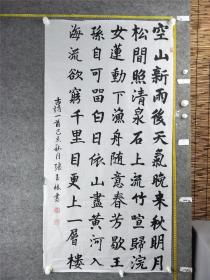 空山新雨後天氣晚来秋明月
松間照清泉石上流竹喧歸浣
女蓮動下漁舟随意春芳歇王
孫自可留白日依山盡黄河入
海流欲窮千里目更上一層樓
己亥秋月張玉林書